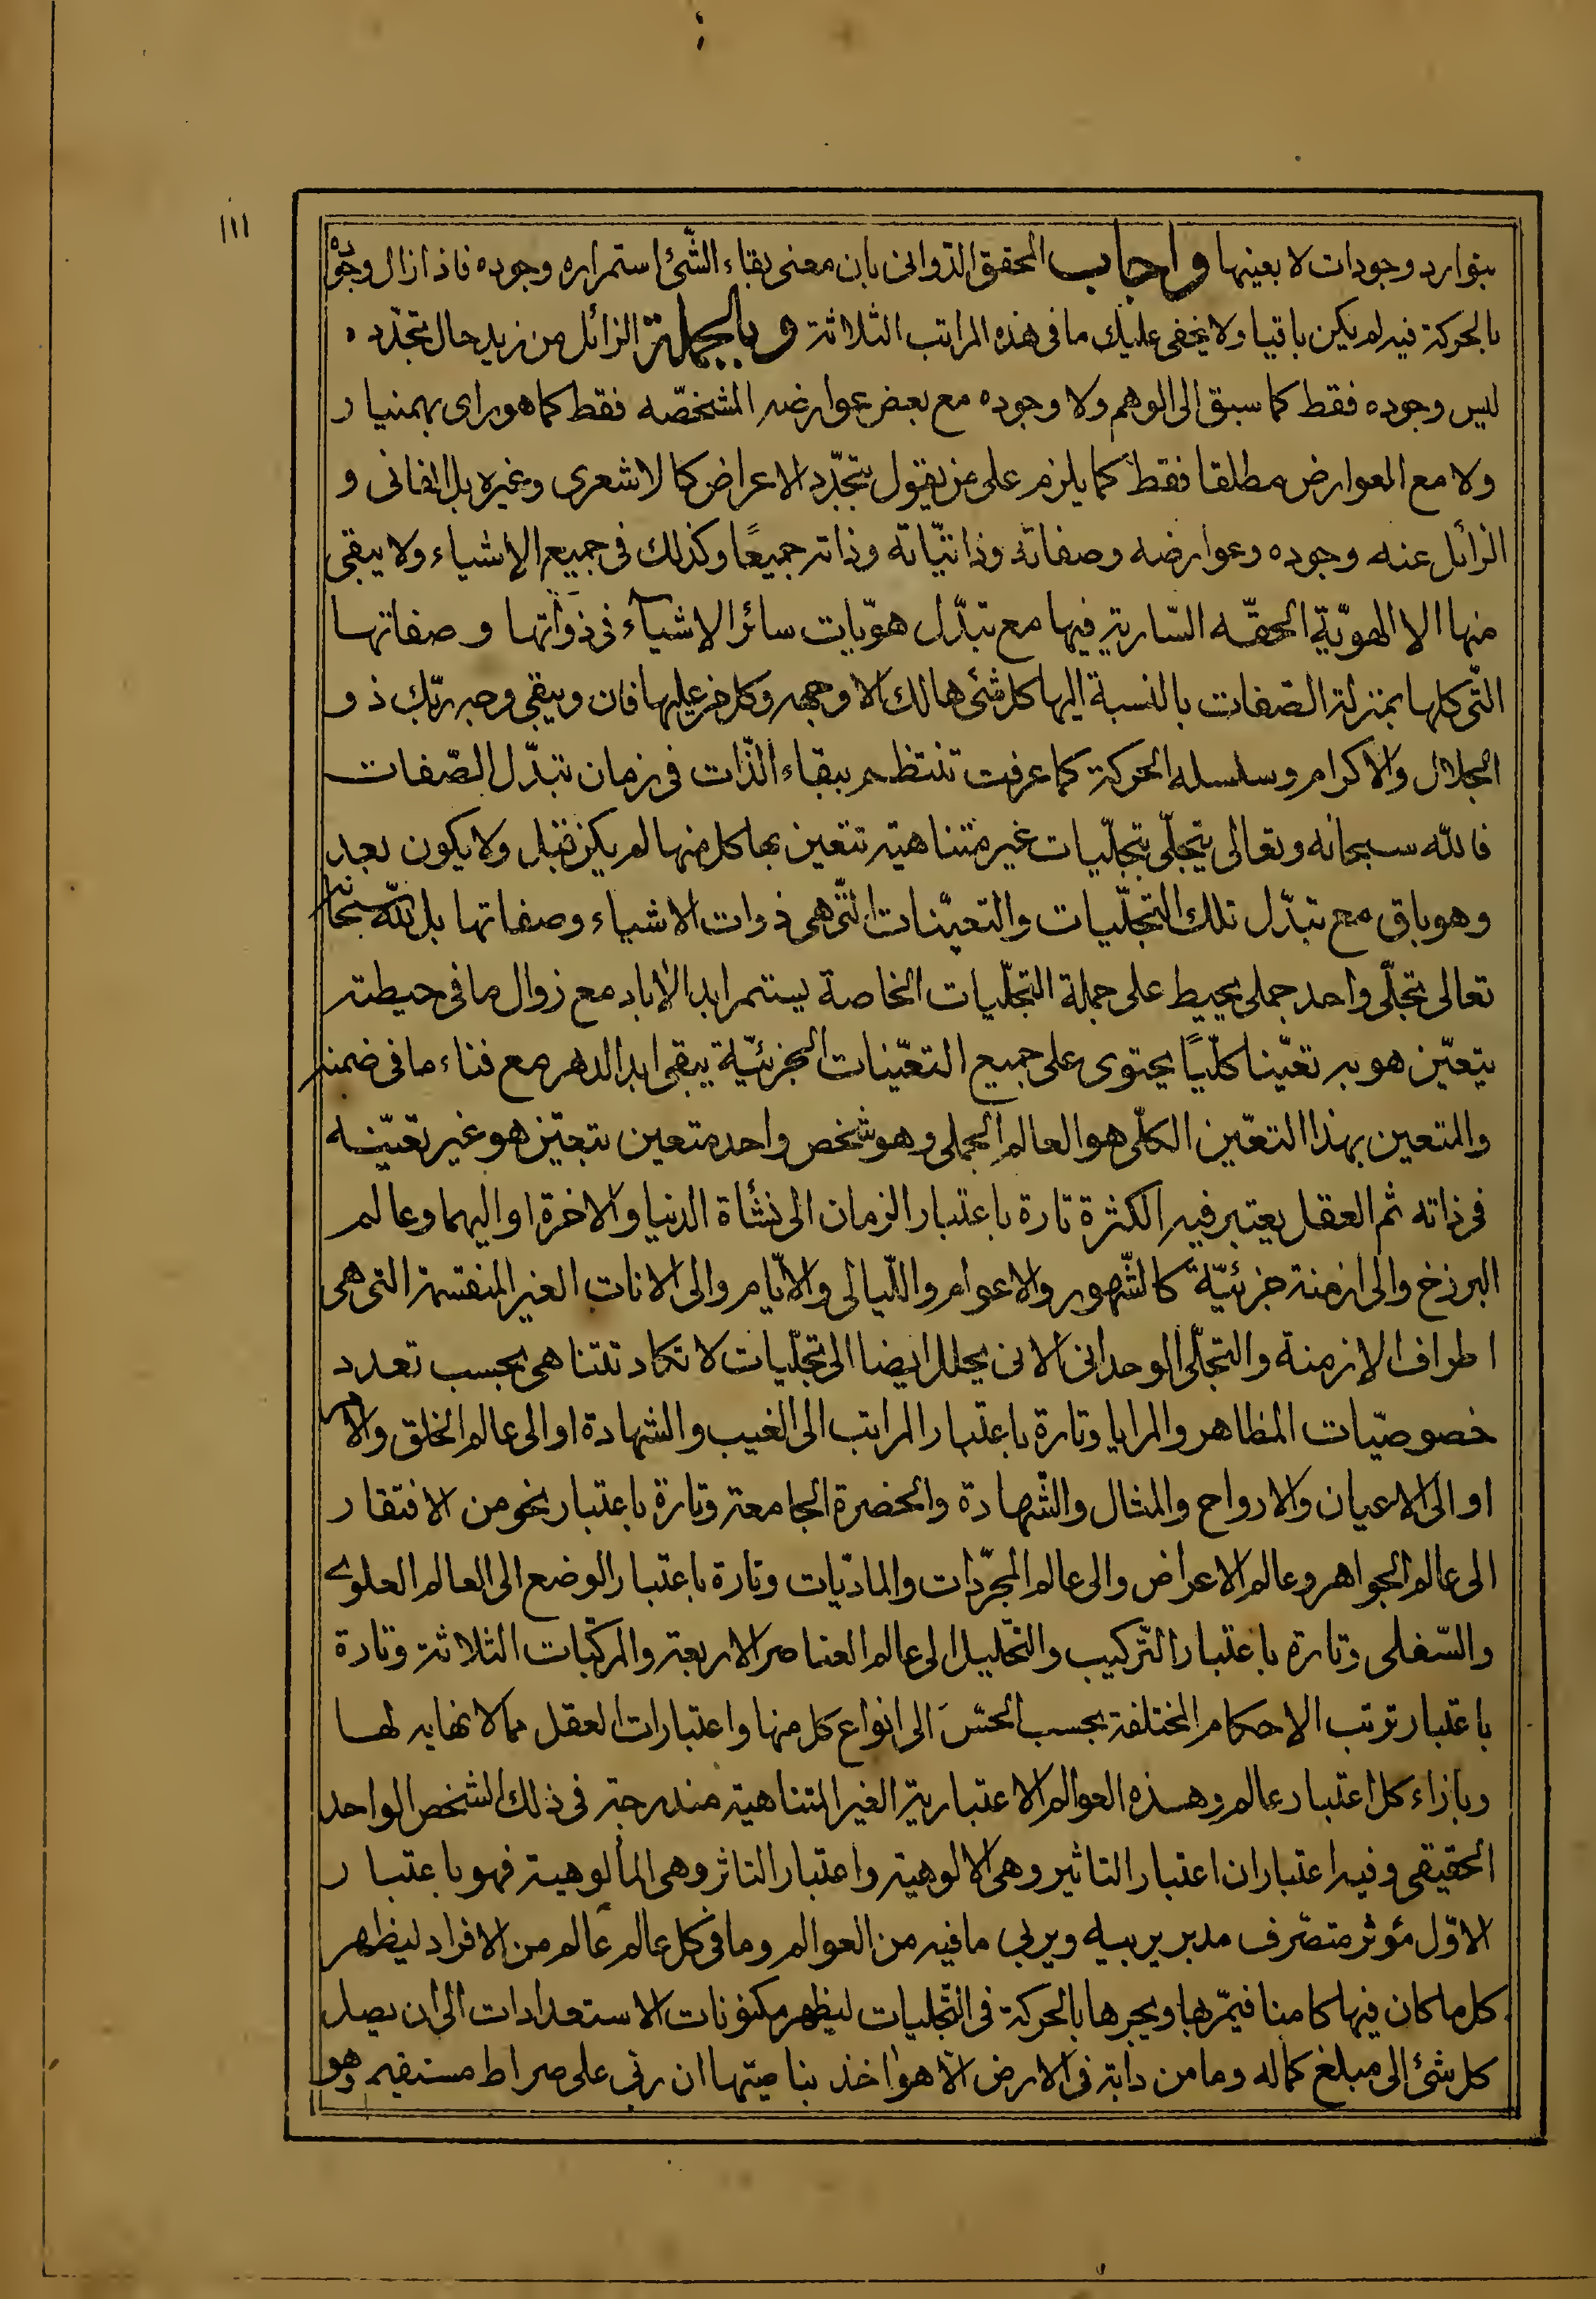 ١١١
بتوارد وجودات لا بعينها واجاب المحقق الدّوانى بان معنى بقاء الشّئ استمراره وجوده فاذا زال وجوده
بالحركة فيه لم يكن باقيا ولا يخفى عليك ما فى هذه المراتب الثلاثة وبالجملة الزائل من زيد حال تجدّده
ليس وجوده فقط كما سبق الى الوهم ولا وجوده مع بعض عوارضه المشخّصه فقط كما هو راى بهمنيار
ولا مع العوارض مطلقا فقط كما يلزم على من يقول بتجدّد الاعراض كالاشعرى وغيره بل الفانى و
الزائل عنه وجوده وعوارضه وصفاته وذاتيّاته وذاته جميعًا وكذلك فى جميع الاشياء ولا يبقى
منها الا الهويّة الحقّه السّارية فيها مع تبدّل هويّات سائر الاشياء فى ذواتها وصفاتها
الّتى كلها بمنزلة الصّفات بالنسبة اليها كل شئ هالك الا وجهه وكل من عليها فان ويبقى وجه ربّك ذو
الجلال والاكرام وسلسله الحركة كما عرفت تنتظم ببقاء الذّات فى زمان تبدّل الصّفات
فالله سبحانه وتعالى يتجلّى بتجلّيات غير متناهية تتعين بها كل منها لم يكن قبل ولا يكون بعد
وهو باق مع تبدّل تلك التجلّيات والتعيّنات الّتى هى ذوات الاشياء وصفاتها بل لله سبحانه
تعالى تجلّى واحد جملى يحيط على جملة التجلّيات الخاصة يستمر ابد الاباد مع زوال ما فى حيطته
يتعيّن هو به تعيّنا كلّيًا يحتوى على جميع التعيّنات الجزئيّة يبقى ابد الدهر مع فناء ما فى ضمنه
والمتعين بهذا التعيّن الكلّى هو العالم الجملى وهو شخص واحد متعين بتعيّن هو غير تعيّنه
فى ذاته ثم العقل يعتبر فيه الكثرة تارة باعتبار الزمان الى نشأة الدنيا والاخرة او اليهما وعالم
البرزخ والى ازمنة جزئيّة كالشّهور والاعوام واللّيالى والايّام والى الانات الغير المنقسمة التى هى
اطراف الازمنة والتجلّى الوحدانى الانى يحلل ايضا الى تجلّيات لا تكاد تتناهى بحسب تعدد
خصوصيّات المظاهر والمرايا وتارة باعتبار المراتب الى الغيب والشهادة او الى عالم الخلق والامر
او الى الاعيان والارواح والمثال والشّهادة والحضرة الجامعة وتارة باعتبار نحو من الافتقار
الى عالم الجواهر وعالم الاعراض والى عالم المجرّدات والماديّات وتارة باعتبار الوضع الى العالم العلوى
والسّفلى وتارة باعتبار التّركيب والتّحليل الى عالم العناصر الاربعة والمركّبات الثلاثة وتارة
باعتبار ترتب الاحكام المختلفة بحسب الحسّ الى انواع كل منها واعتبارات العقل مما لا نهايه لها
وبازاء كل اعتبار عالم وهذه العوالم الاعتبارية الغير المتناهية مندرجة فى ذلك الشخص الواحد
الحقيقى وفيه اعتباران اعتبار التاثير وهى الالوهية واعتبار التاثر وهى المألوهية فهو باعتبار
الاوّل مؤثر متصّرف مدبر يربيه ويربى ما فيه من العوالم وما فى كل عالم عالم من الافراد ليظهر
كل ما كان فيها كامنا فيمّرها ويجرها بالحركة فى التّجليات ليظهر مكنونات الاستعدادات الى ان يصل
كل شئ الى مبلغ كماله وما من دابة فى الارض الّا هو اخذ بناصيتها ان ربى على صراط مستقيم وهو